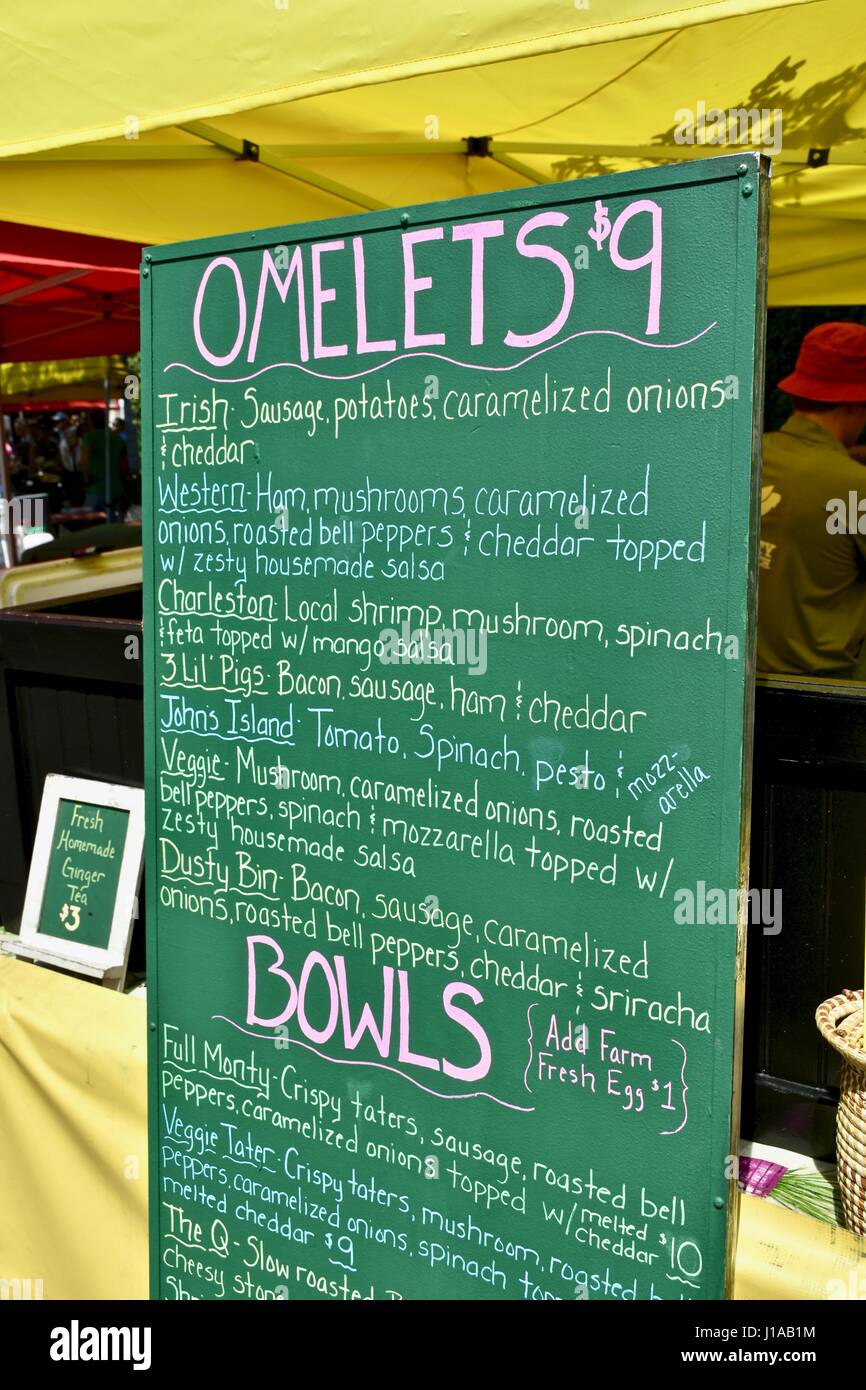 OMELETS $9
Irish- Sausage, potatoes, caramelized onions
& cheddar
Western- Ham, mushrooms, caramelized
onions, roasted bell peppers & cheddar topped
w/ zesty housemade salsa
Charleston- Local shrimp, mushroom, spinach
& feta topped w/ mango salsa
3 Lil' Pigs- Bacon, sausage, ham & cheddar
John's Island- Tomato, Spinach, pesto & mozz-
arella
Veggie- Mushroom, caramelized onions, roasted
bell peppers, spinach & mozzarella topped w/
zesty housemade salsa
Dusty Bin- Bacon, sausage, caramelized
onions, roasted bell peppers, cheddar & sriracha
BOWLS
Add Farm
Fresh Egg $1
Full Monty- Crispy taters, sausage, roasted bell
peppers, caramelized onions topped w/ melted
cheddar $10
Veggie Tater- Crispy taters, mushroom, roasted b
peppers, caramelized onions, spinach top
melted cheddar $9
The Q- Slow roasted
cheesy ston
Fresh
Homemade
Ginger
Tea
$3
alamy stock photo
J1AB1M
www.alamy.com